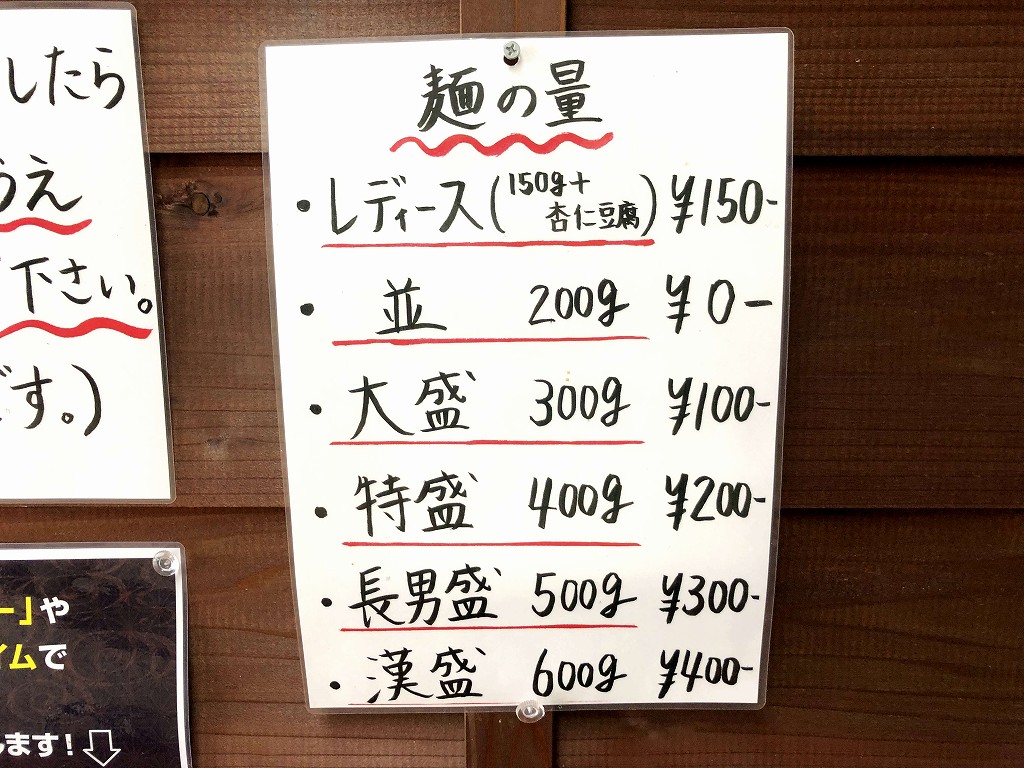 したら
うえ
下さい。
です。)
ー」や
イムで
します!⇩
麺の量
・レディース(150g+杏仁豆腐) ¥150-
・並 200g ¥0-
・大盛 300g ¥100-
・特盛 400g ¥200-
・長男盛 500g ¥300-
・漢盛 600g ¥400-